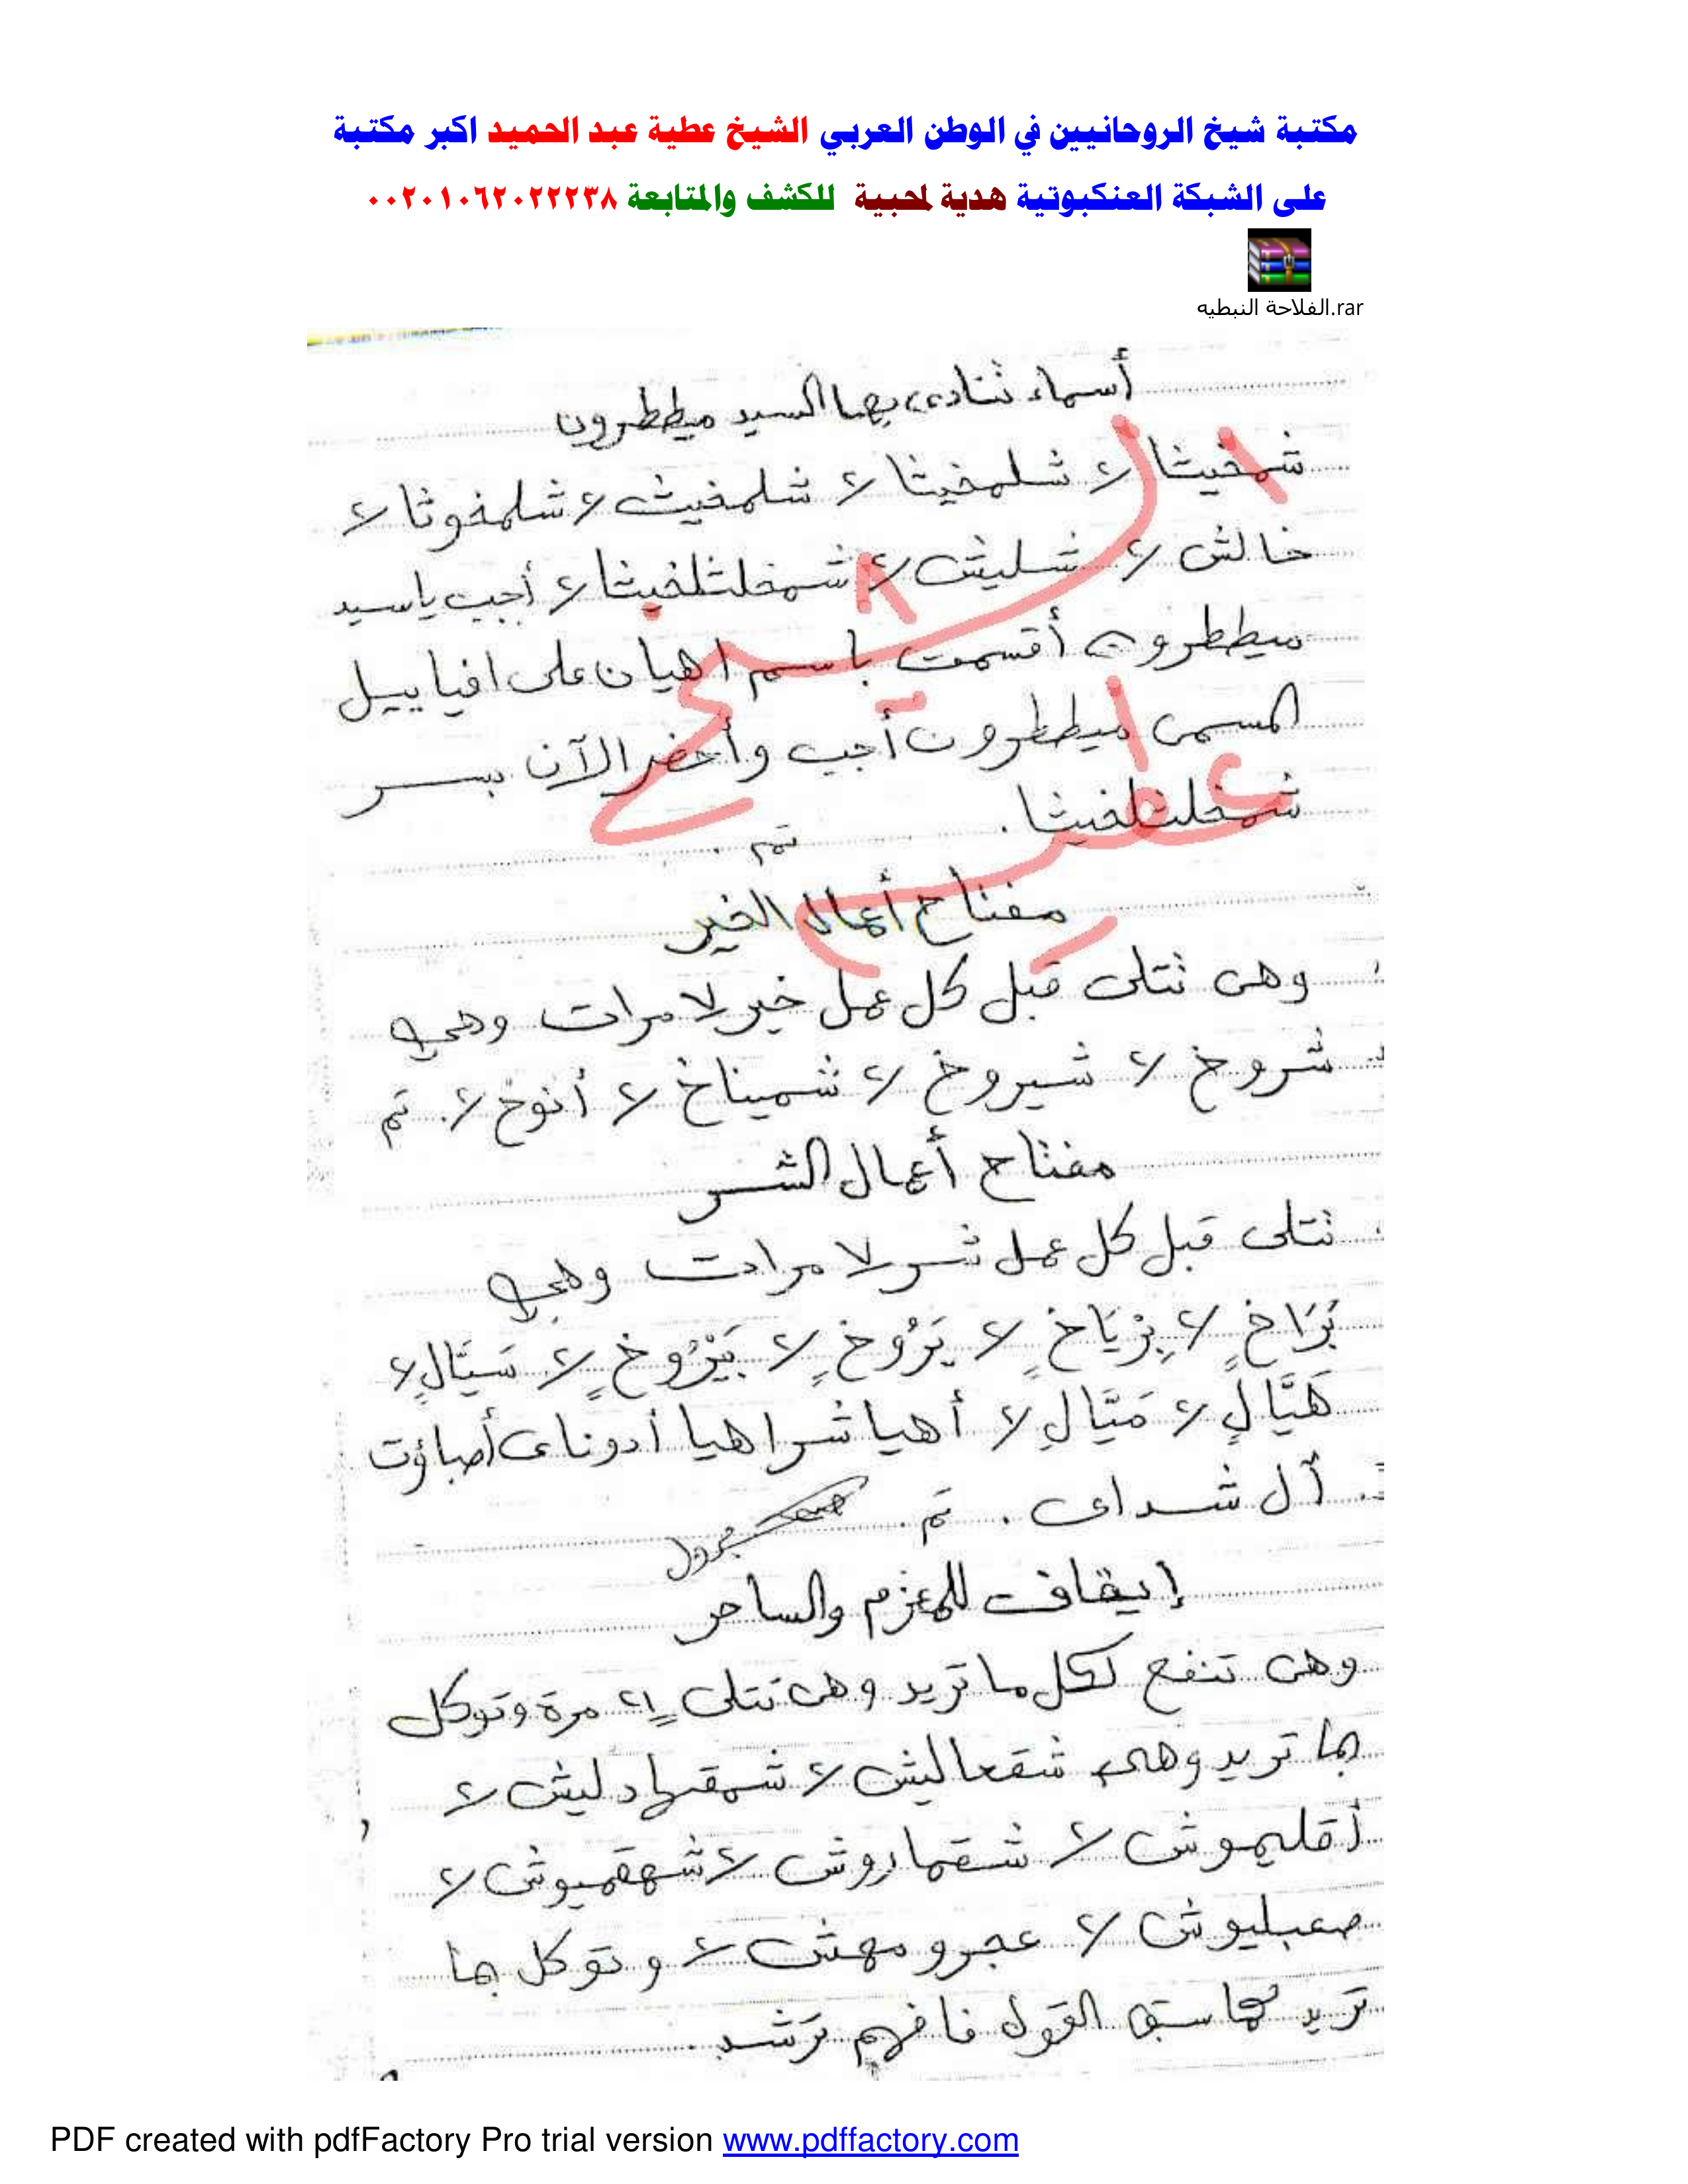 مكتبة شيخ الروحانيين في الوطن العربي الشيخ عطية عبد الحميد اكبر مكتبة
على الشبكة العنكبوتية هدية لمحبية للكشف والمتابعة ٠٠٢٠١٠٦٢٠٢٢٢٣٨
الفلاحة النبطيه.rar
أسماء تنادى بها السيد ميططرون
شمخيثا لا شلمخيثا لا شلمخيث لا شلمخوثا لا
خالش لا شليش لا شمخلثلخيثا لا أجب ياسيد
ميططرون أقسمت باسم اهيان على افياييل
المسمى ميططرون أجب وأحضر الآن بسر
شمخلثلخيثا . تم .
مفتاح أعمال الخير
وهى تتلى قبل كل عمل خير ٧ مرات وهى
شروخ لا شيروخ لا شميناخ لا أنوخ لا . تم
مفتاح أعمال الشر
تتلى قبل كل عمل شر ٧ مرات وهى
بَرَاخٍ لا بِرْيَاخٍ لا يَرُوخٍ لا بَيْرُوخٍ لا سَيَّالٍ لا
هَيَّالٍ لا مَيَّالٍ لا أهيا شراهيا أدوناى أصباؤت
آل شداى . تم .
إيقاف للمعزم والساحر
وهى تنفع لكل ما تريد وهى تتلى ٢١ مرة وتوكل
بما تريد وهى شقعاليش لا شمقهادليش لا
أقليموش لا شقماروش لا شهقميوش لا
صعبليوش لا عجرومهش لا وتوكل بما
تريد كما سبق القول فافهم ترشد .
PDF created with pdfFactory Pro trial version www.pdffactory.com